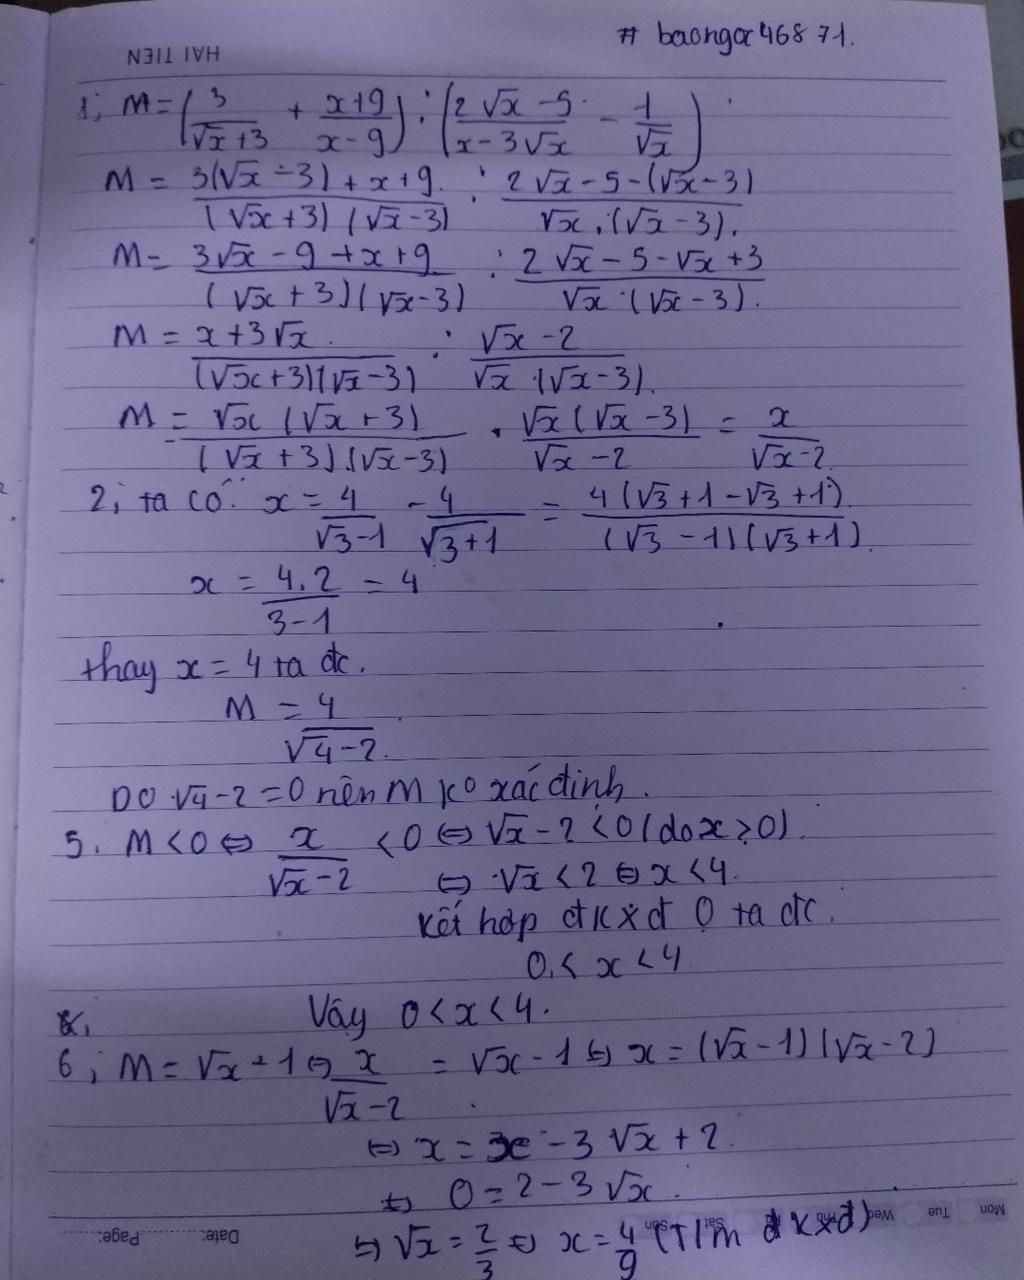 # baongoc46871.
HAI TIEN
1, M = (3/(√x+3) + (x+9)/(x-9)) : ((2√x-5)/(x-3√x) - 1/√x)
M = (3(√x-3)+x+9)/((√x+3)(√x-3)) : (2√x-5-(√x-3))/(√x.(√x-3)).
M = (3√x-9+x+9)/((√x+3)(√x-3)) : (2√x-5-√x+3)/(√x.(√x-3)).
M = (x+3√x)/((√x+3)(√x-3)) : (√x-2)/(√x.(√x-3)).
M = (√x(√x+3))/((√x+3).(√x-3)) . (√x(√x-3))/(√x-2) = x/(√x-2)
2, ta có: x = 4/(√3-1) - 4/(√3+1) = (4(√3+1-√3+1))/((√3-1)(√3+1)).
x = (4.2)/(3-1) = 4
thay x = 4 ta đc.
M = 4/(√4-2).
Do √4-2 = 0 nên M ko xác định.
5. M < 0 ⇔ x/(√x-2) < 0 ⇔ √x-2 < 0 (do x ≥ 0)
⇔ √x < 2 ⇔ x < 4.
Kết hợp đkxđ ta đc.
0 < x < 4
Vậy 0 < x < 4.
6, M = √x-1 ⇔ x/(√x-2) = √x-1 ⇔ x = (√x-1)(√x-2)
⇔ x = x-3√x+2.
⇔ 0 = 2-3√x.
⇔ √x = 2/3 ⇔ x = 4/9 (T/m đkxđ)
Mon Tue Wed Thu Fri Sat Sun
Date: Page: